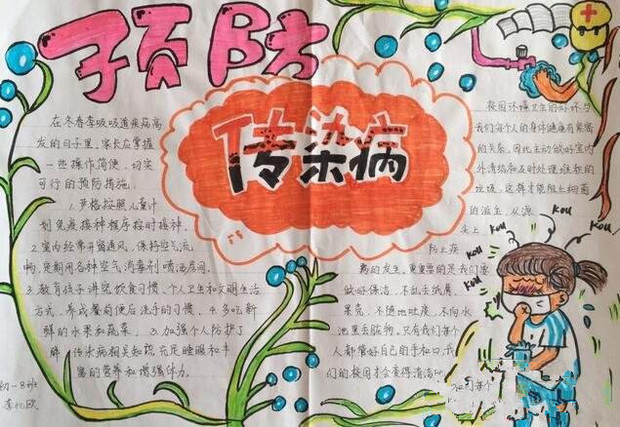 预防
传染病
在冬春季呼吸道疾病高
发的日子里,家长应掌握
一些操作简便,切实
可行的预防措施。
1.严格按照儿童计
划免疫接种程序按时接种。
2.室内经常开窗通风,保持空气流
畅,定期用各种空气消毒剂喷洒房间。
3.教育孩子讲究饮食习惯,个人卫生和文明生活
方式,养成餐前便后洗手的习惯。4.多吃新
鲜的水果和蔬菜。
校园环境卫生的好坏与
我们每个人的身体健康有紧密
的关系,因此主动做好室内
外清洁和及时处理堆积的
垃圾,这样才能阻止细菌
的滋生,从源
头上
防止疾
病的发生。更重要的是我们要
做好保洁,不乱丢纸屑、
果壳、不随地吐痰,不向水
池里丢脏物。只有我们每个
人都管好自己的手和口,我
们的校园才会变得清洁
kou
kou
kou
kou
kou
初一8班